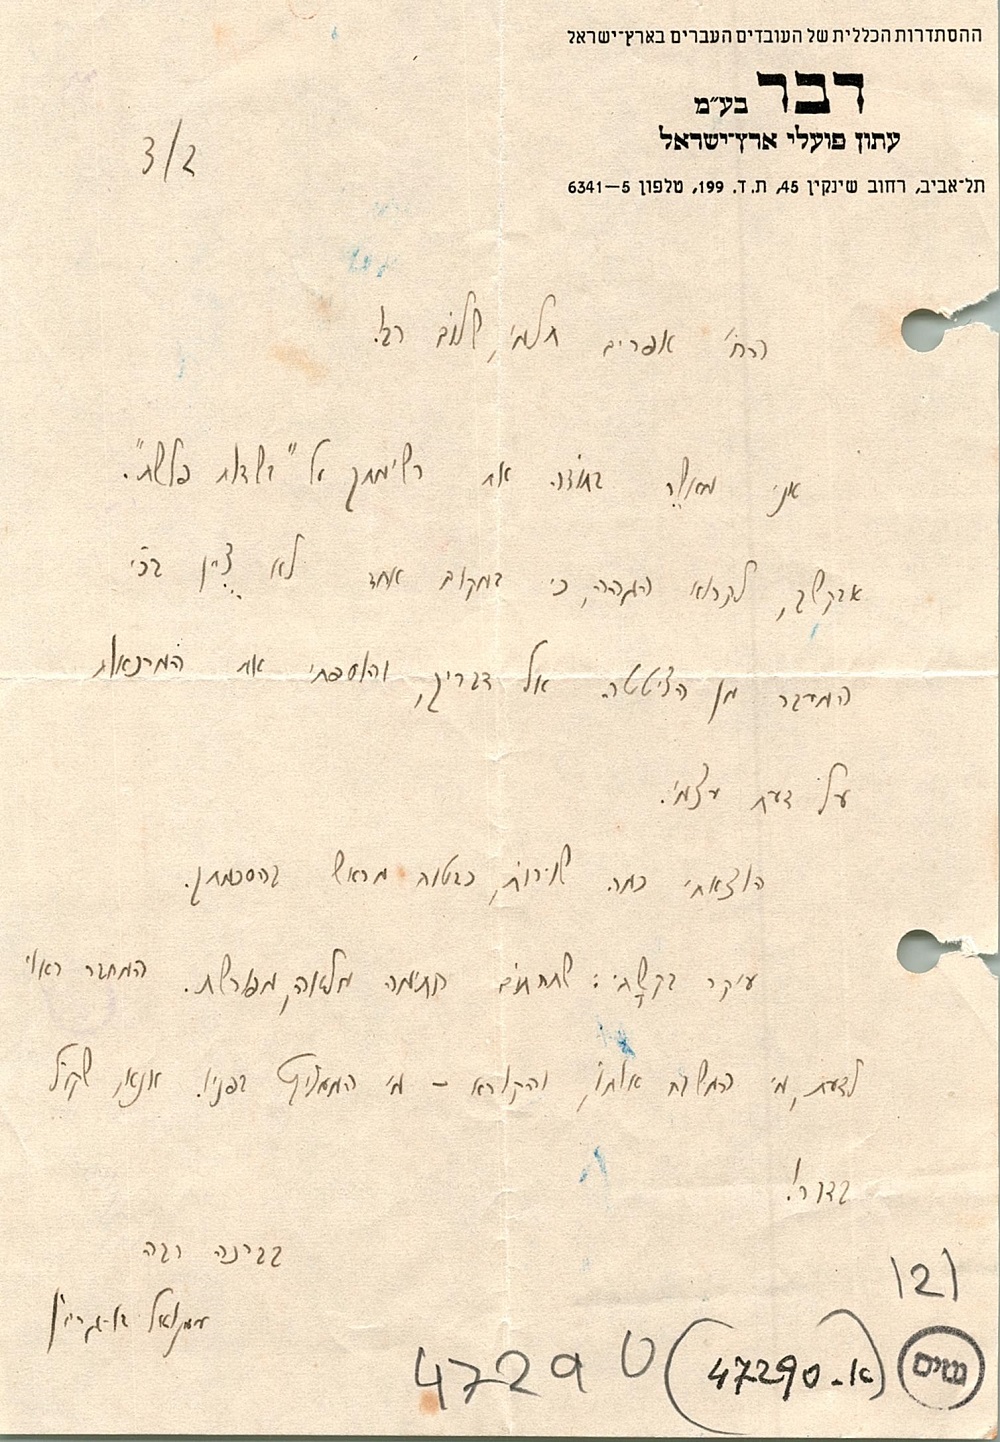 ההסתדרות הכללית של העובדים העברים בארץ־ישראל
דבר בע״מ
עתון פועלי ארץ־ישראל
תל־אביב, רחוב שינקין 45, ת. ד. 199, טלפון 5—6341
3/2
אפרים תלמי, שלום רב!
אני מאשר בתודה את רשימתך על "בשדות פלשת".
אבקשך, לקרוא הגהה, כי במקום אחד לא צוין בכ"י
המעבר מן הציטטה אל דבריך, והוספתי את המרכאות
על דעת עצמי.
הוצאתי כמה שורות, כבטוח מראש בהסכמתך.
עיקר בקשתי: שתחתום חתימה מלאה, מפורשת. המחבר ראוי
לדעת, מי המשבח אותו, והקורא – מי הממליץ בפניו. אנא, שקול
בדבר!
בברכה רבה
עמנואל בן-גריון
121
47290 (א-47290)
גנזים